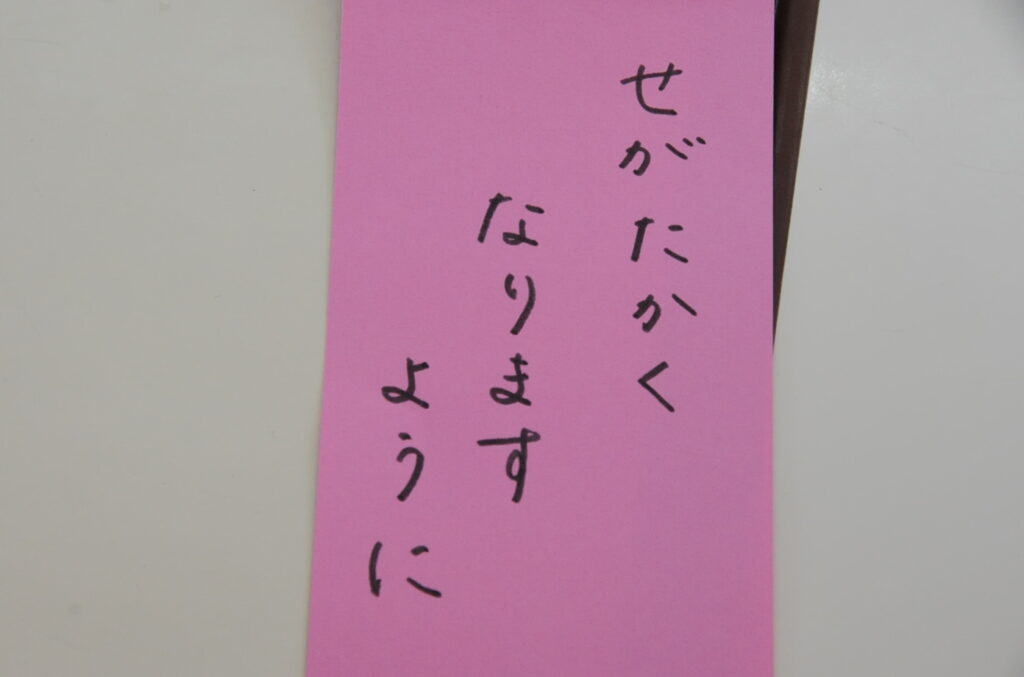 せがたかく
なります
ように